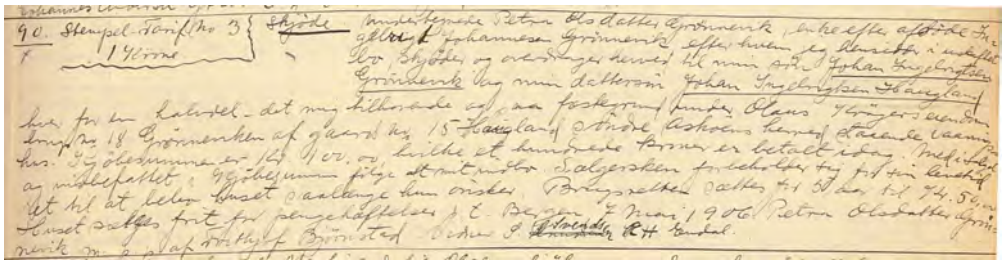 90. Stempel-Tarif No 3 } Skjøde Undertegnede Petra Olsdatter Grønnevik, enke efter afdøde In-
x 1 Krone gebrigt Johannesen Grønnevik, efter hvem jeg hensidder i uskiftet
bo, skjøder og overdrager herved til min søn Johan Ingebrigtsen
Grønnevik og min dattersøn Johan Ingebrigtsen Haugland
hver for en halvdel det mig tilhørende og paa fæstegrund under Olaus eiendom
brug No 18 Grønneviken af gaards No 15 Haugland søndre Askøens herred staaende vaanings-
hus. Kjøbesummen er Kr 100.00, hvilke et hundrede kroner er betalt idag. Med i
og indbefattet i Kjøbesummen følge alt mit indbo. Sælgersken forbeholder sig for sin levetid
ret til at bebo huset saalænge hun ønsker. Brugsretten sættes for 5 aar til Kr. 50,00
Huset sælges frit for pengeheftelser p. t. Bergen 7 Mai 1906 Petra Olsdatter Grøn-
nevik m. p. p. af Bjørnstad. Vidner S. Endal.